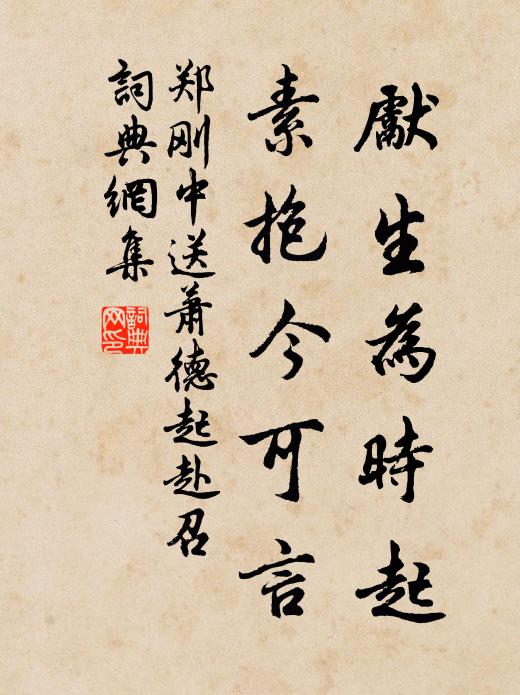 獻生為時起
素抱今可言
郑刚中送萧德起赴召
詞典網集
詞典
网印